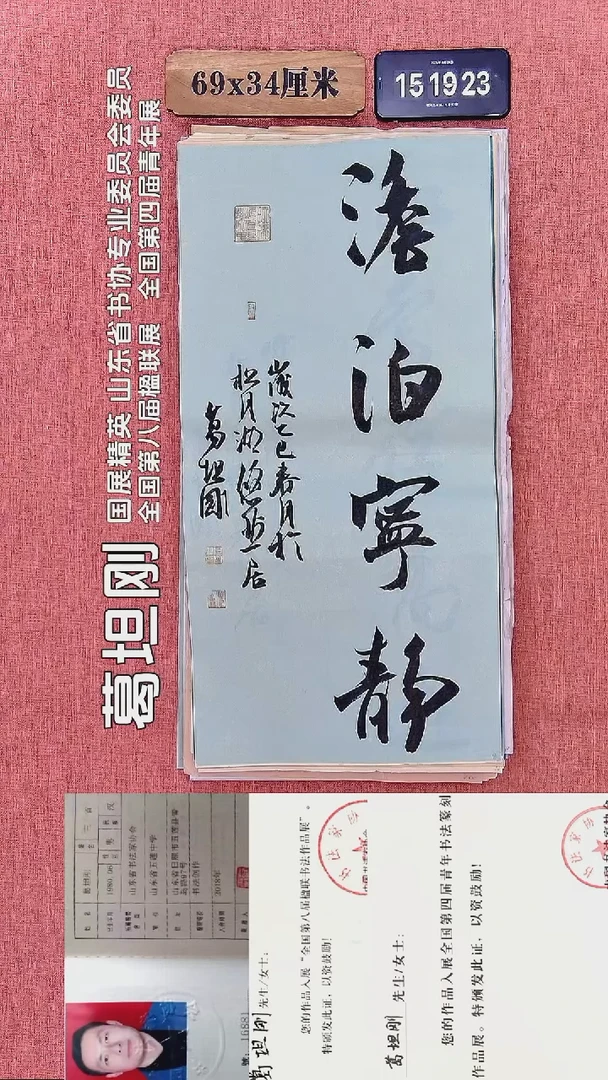 69x34厘米
15 19 23
澹泊寧靜
歲次乙巳春月於
松月湖
葛坦剛
葛坦刚
国展精英 山东省书协专业委员会委员
全国第八届楹联展 全国第四届青年展
山东省书法家协会
山东省五莲中学
书法创作
2018年
號: 16881
葛坦刚 先生/女士:
您的作品入展“全国第八届楹联书法作品展”。
特颁发此证, 以资鼓励!
葛坦刚 先生/女士:
您的作品入展全国第四届青年书法篆刻
作品展。特颁发此证, 以资鼓励!